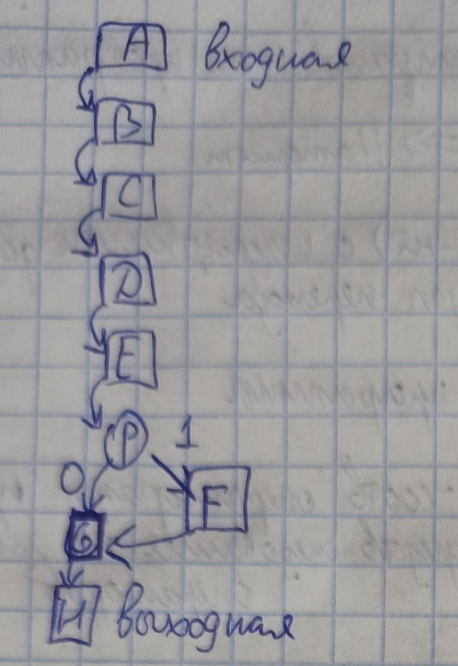 A входная
B
C
D
E
P 1
0 F
G
H выходная